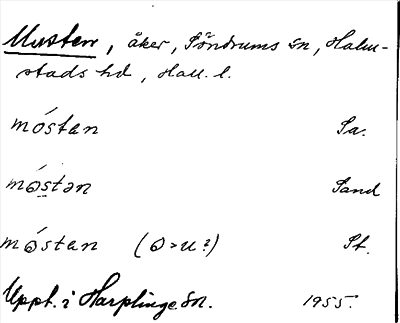 Musten, åker, Söndrums sn, Halm-
stads hd, Hall. l.
móstan Sa.
mós̤tən Sand
mɷ́stan (ɷ>u?) St.
Uppt. i Harplinge sn. 1955.